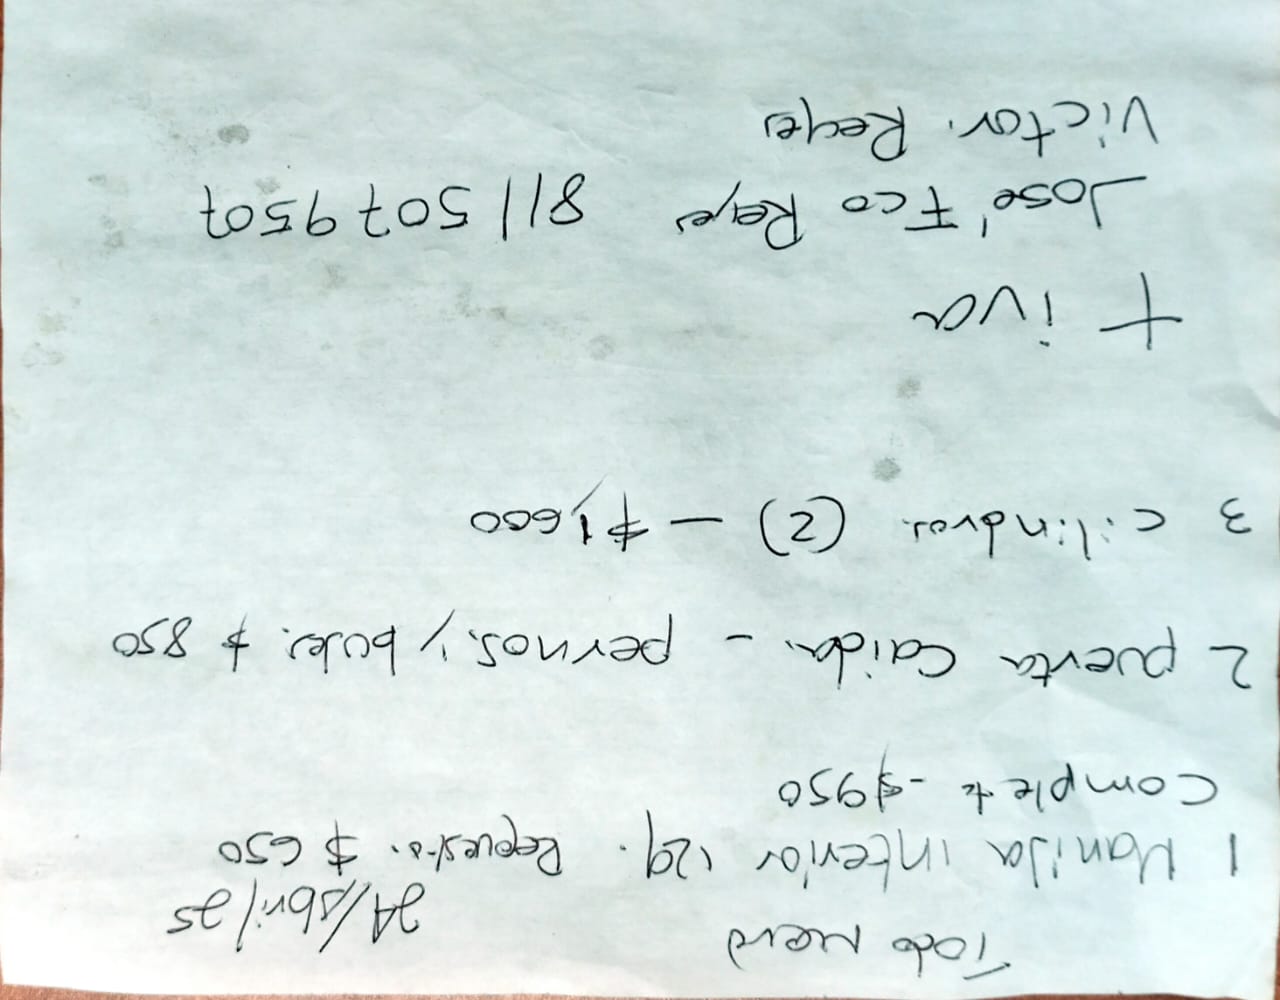 Todo Nuevo
24/Abril/25
1 Manija interior izq. Repuesto. $ 650
Completa - $950
2 puerta Caida - pernos, y bujes. $ 850
3 cilindros. (2) - $1,600
+ iva
José Fco Reyes 811 507 9507
Victor. Reyes